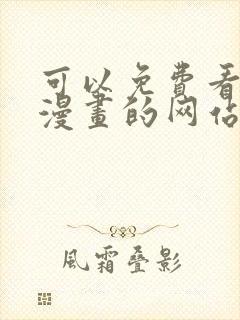 可以免費看
漫畫的网站
風霜叠影